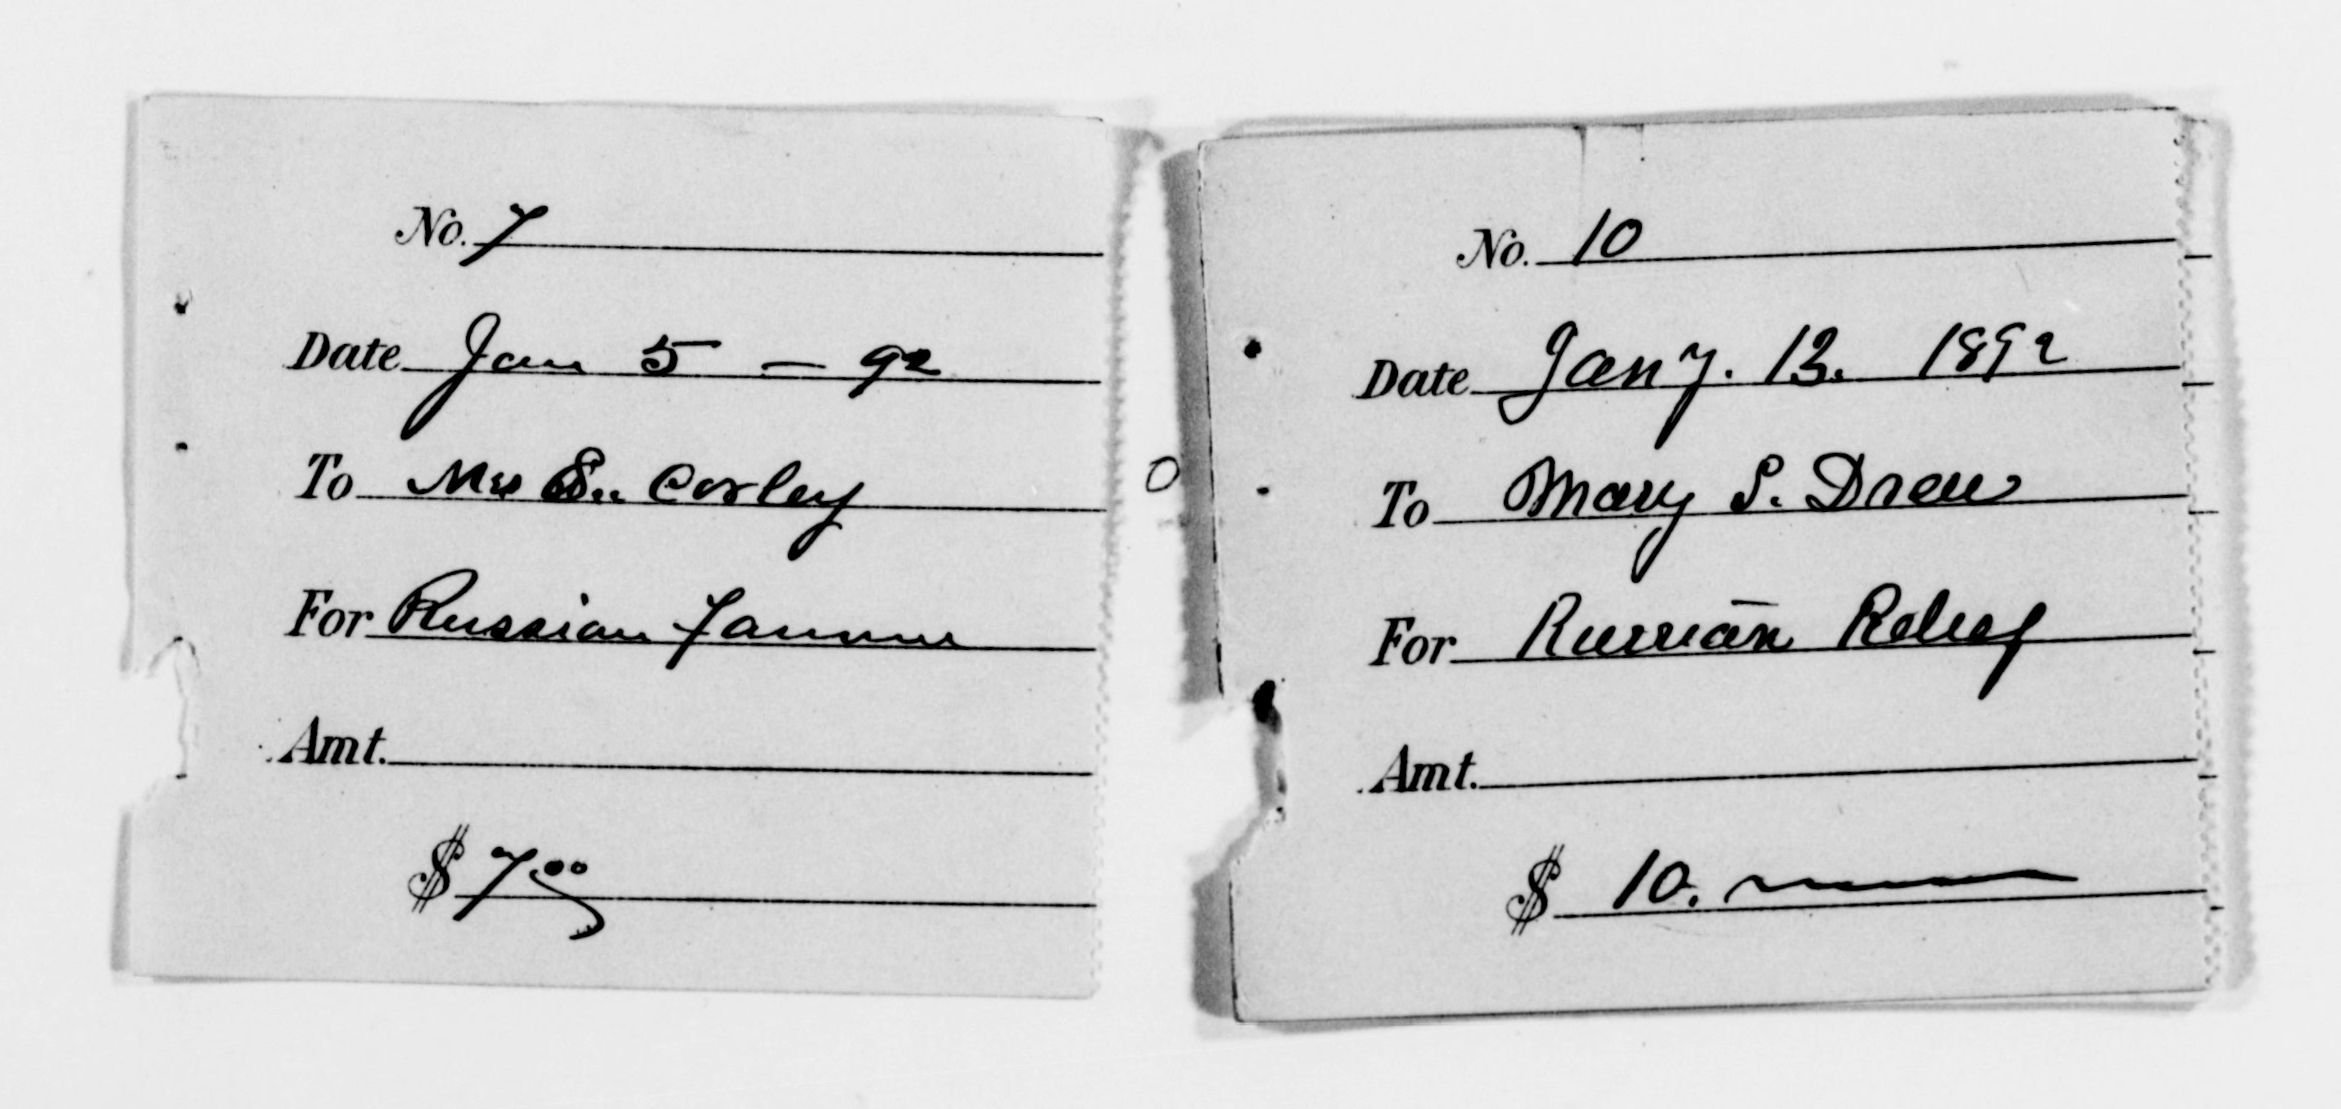 No. 7
Date Jan 5 – 92
To Mrs E. Corley
For Russian Famine
Amt.
$ 7.00
No. 10
Date Jany. 13. 1892
To Mary S. Drew
For Russian Relief
Amt.
$ 10.